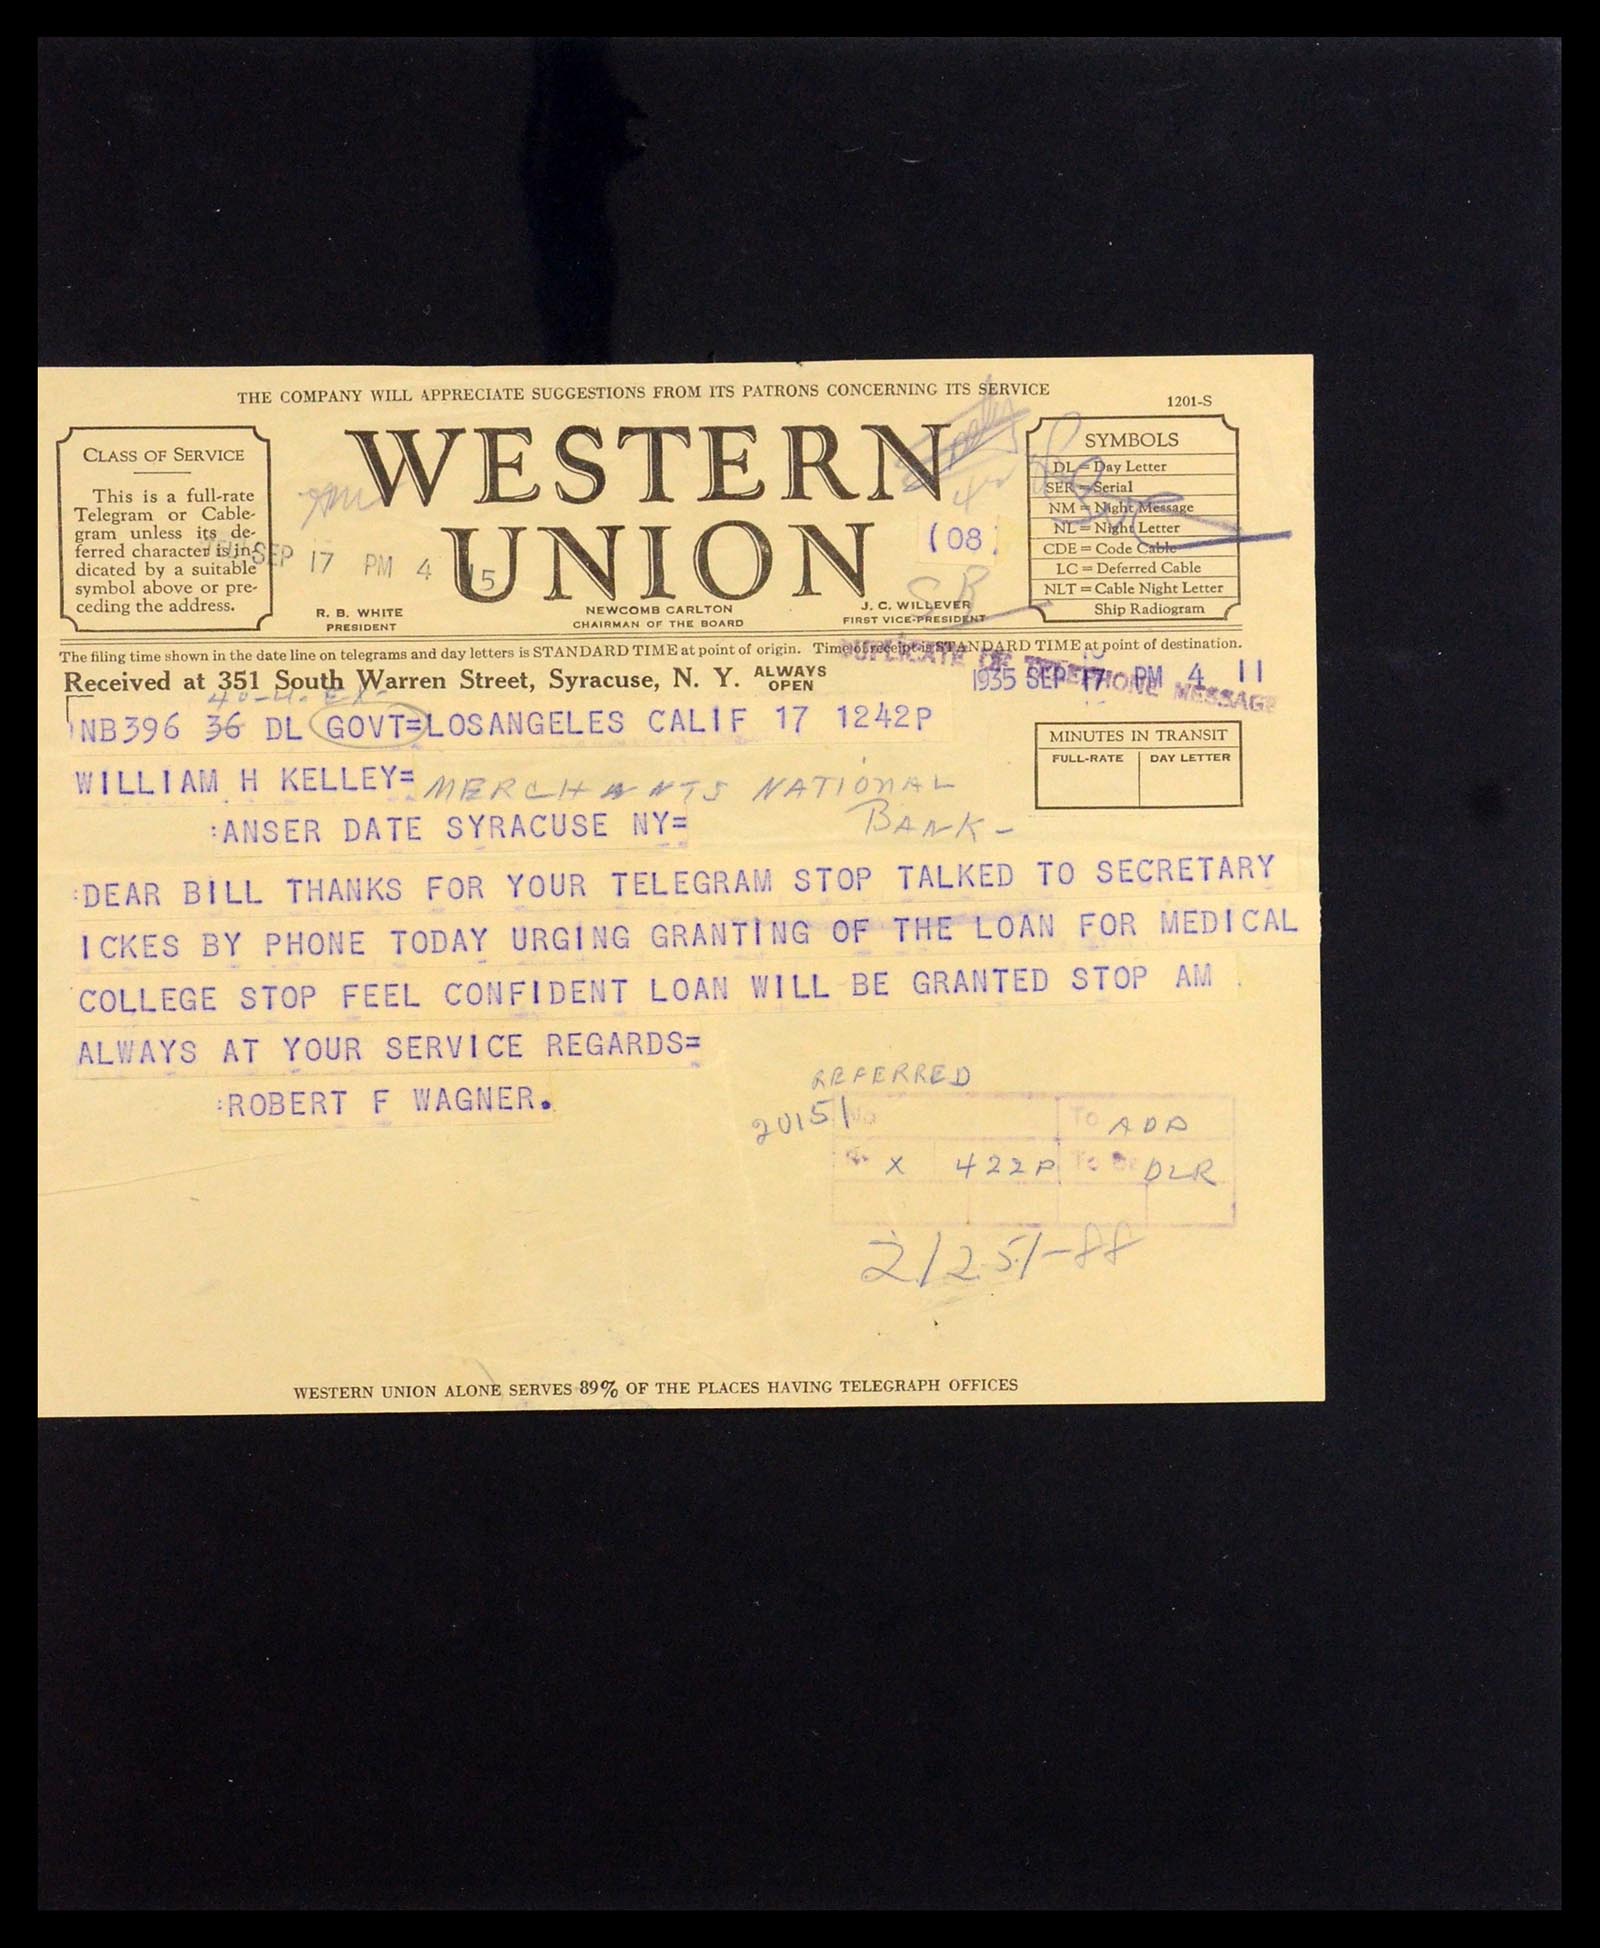 THE COMPANY WILL APPRECIATE SUGGESTIONS FROM ITS PATRONS CONCERNING ITS SERVICE
1201-S
CLASS OF SERVICE
This is a full-rate
Telegram or Cable-
gram unless its de-
ferred character is in-
dicated by a suitable
symbol above or pre-
ceding the address.
WESTERN
UNION
(08)
SB
SEP 17 PM 4 15
R. B. WHITE
PRESIDENT
NEWCOMB CARLTON
CHAIRMAN OF THE BOARD
J. C. WILLEVER
FIRST VICE-PRESIDENT
SYMBOLS
DL = Day Letter
SER = Serial
NM = Night Message
NL = Night Letter
CDE = Code Cable
LC = Deferred Cable
NLT = Cable Night Letter
Ship Radiogram
The filing time shown in the date line on telegrams and day letters is STANDARD TIME at point of origin. Time of receipt is STANDARD TIME at point of destination.
DUPLICATE OF TELEPHONE MESSAGE
Received at 351 South Warren Street, Syracuse, N. Y. ALWAYS OPEN
1935 SEP 17 PM 4 11
NB396 36 DL GOVT=LOSANGELES CALIF 17 1242P
MINUTES IN TRANSIT
FULL-RATE DAY LETTER
WILLIAM H KELLEY= MERCHANTS NATIONAL
BANK-
:ANSER DATE SYRACUSE NY=
:DEAR BILL THANKS FOR YOUR TELEGRAM STOP TALKED TO SECRETARY
ICKES BY PHONE TODAY URGING GRANTING OF THE LOAN FOR MEDICAL
COLLEGE STOP FEEL CONFIDENT LOAN WILL BE GRANTED STOP AM
ALWAYS AT YOUR SERVICE REGARDS=
:ROBERT F WAGNER.
REFERRED
20151 No To ADA
X 422P To Be DLR
2/251-88
WESTERN UNION ALONE SERVES 89% OF THE PLACES HAVING TELEGRAPH OFFICES